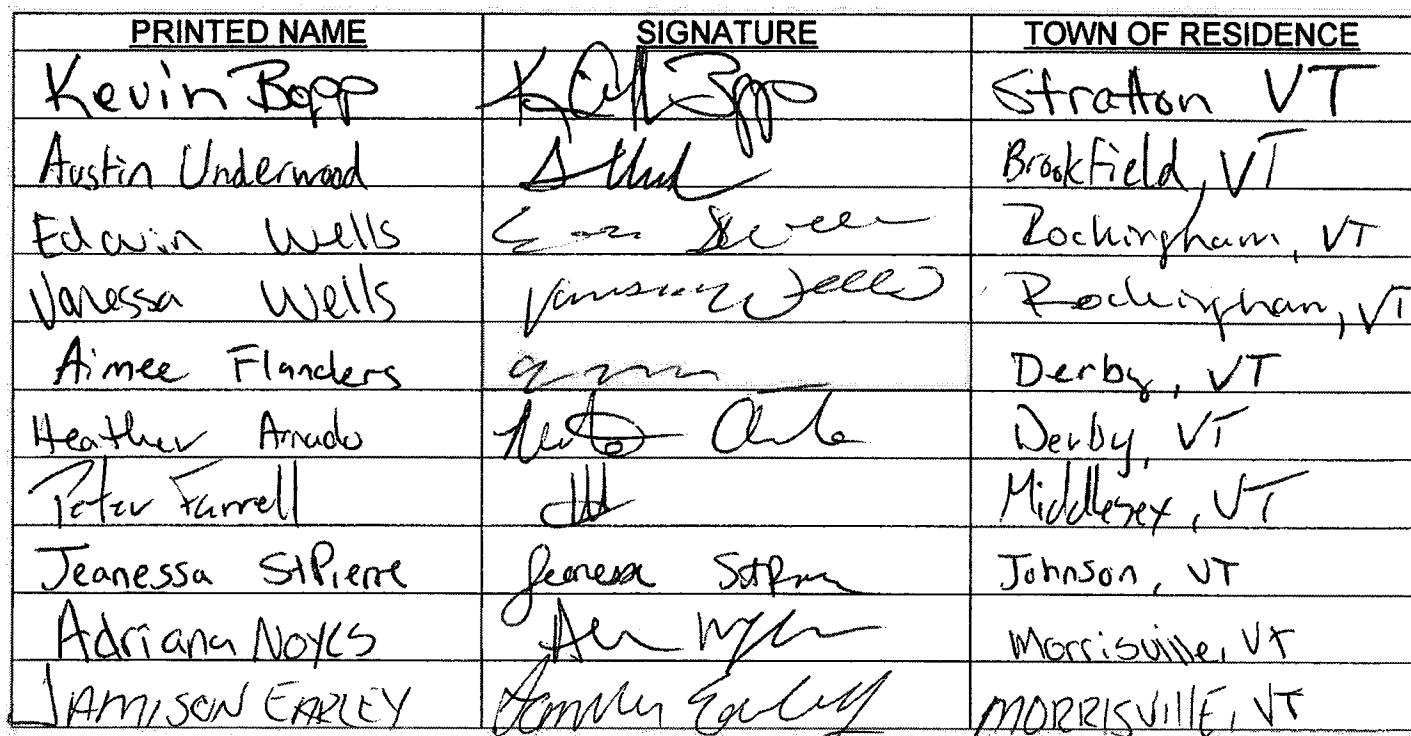 PRINTED NAME SIGNATURE TOWN OF RESIDENCE
Kevin Bopp Bopp Stratton VT
Austin Underwood Brookfield, VT
Edwin Wells Rockingham, VT
Vanessa Wells Vanessa Wells Rockingham, VT
Aimee Flanders Derby, VT
Heather Amado Derby, VT
Peter Farrell Middlesex, VT
Jeanessa StPierre Johnson, VT
Adriana Noyes Morrisville, VT
JAMISON EARLEY Earley MORRISVILLE, VT